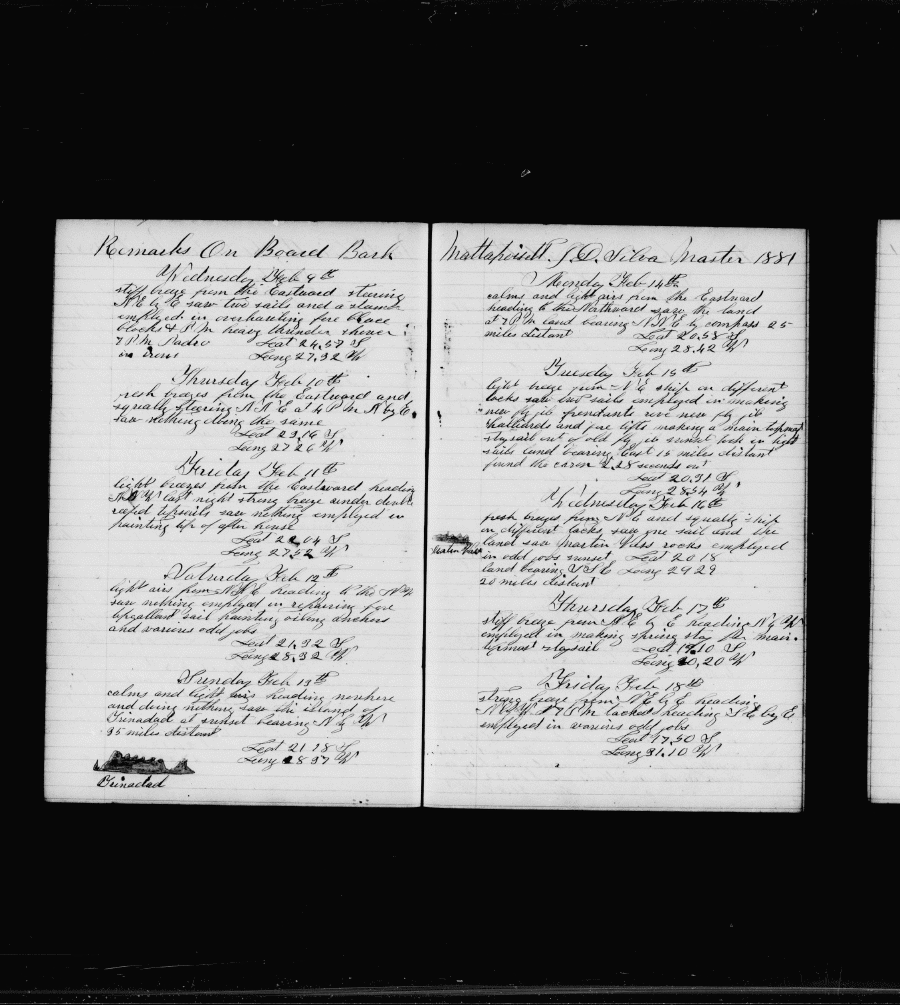 Remarks On Board Bark
Wednesday Feb 9th
stiff breeze from the Eastward steering
N E by E saw two sails and a steamer
employed in overhauling fore brace
blocks 4 P M heavy thunder shower
7 P M Pedro Lat 24,57 S
in irons Long 27,32 W
Thursday Feb 10th
fresh breezes from the Eastward and
squally steering N N E at 4 P M N by E
saw nothing doing the same
Lat 23,16 S
Long 27 26 W
Friday Feb 11th
light breezes from the Eastward heading
last night strong breeze under double
reefed topsails saw nothing employed in
painting top of after house
Lat 22,04 S
Long 27,52 W
Saturday Feb 12th
light airs from N N E heading to the N W
saw nothing employed in repairing fore
topgallant sail painting oiling anchors
and various odd jobs
Lat 21,32 S
Long 28,32 W
Sunday Feb 13th
calms and light airs heading nowhere
and doing nothing saw the island of
Trinadad at sunset bearing N by W
35 miles distant
Lat 21 18 S
Long 28 37 W
Trinadad
Mattapoisett. J. D. Silva Master 1881
Monday Feb 14th
calms and light airs from the Eastward
heading to the Northward saw the land
at 7 P M land bearing N N E by compass 25
miles distant Lat 20,58 S
Long 28,42 W
Tuesday Feb 15th
light breeze from N E ship on different
tacks saw two sails employed in makeing
new fly jib pendants rove new fly jib
halliards and fore lifts making a main topmast
staysail out of old fly jib sunset tack in light
sails land bearing East 15 miles distant
found the 28 seconds
Lat 20,31 S
Long 28,54 W
Wednesday Feb 16th
fresh breezes from N E and squally ship
on different tacks saw one sail and the
land saw Martin Vass rocks employed
Martin Vass
in odd jobs sunset Lat 20 18
land bearing S S E Long 29 29
20 miles distant
Thursday Feb 17th
stiff breeze from N E by E heading N by W
employed in making spring stay for main
topmast staysail Lat 19,10 S
Long 30,20 W
Friday Feb 18th
strong breeze from N E by E heading
7 P M tacked heading S E by E
employed in various odd jobs
Lat 17,50 S
Long 31,10 W